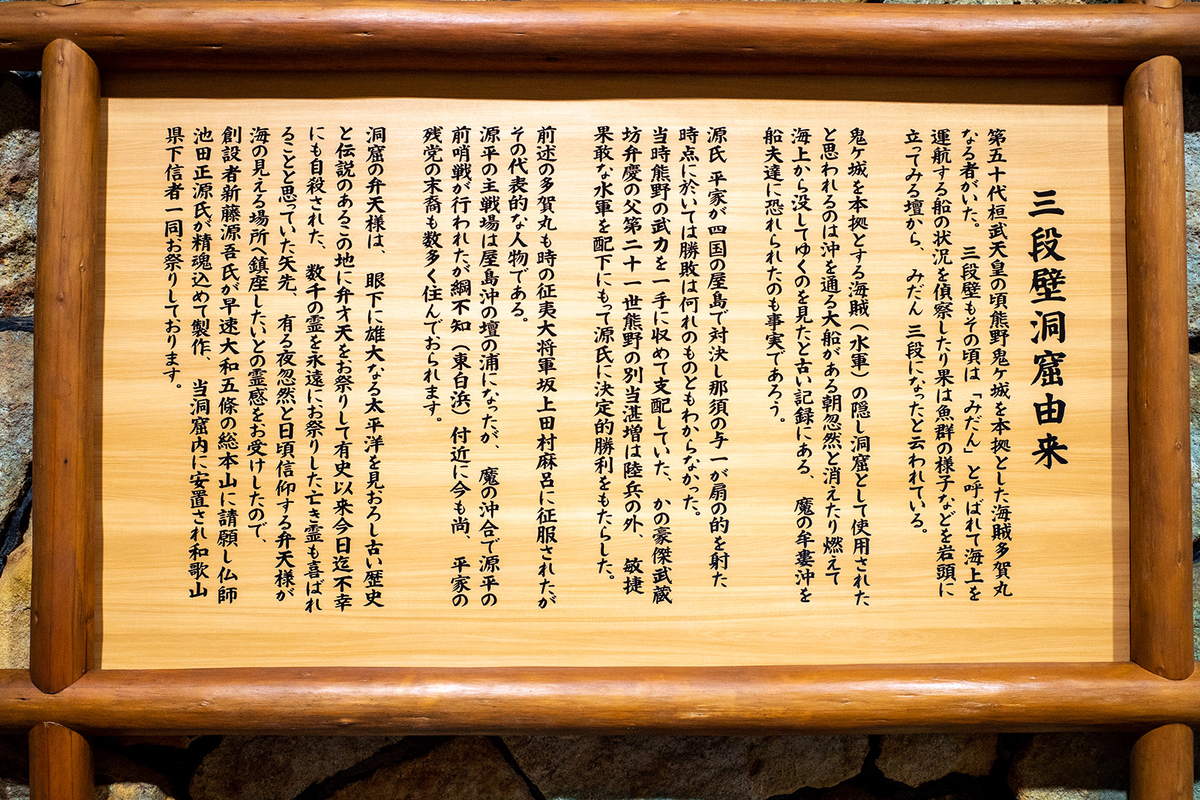 三段壁洞窟由来
第五十代桓武天皇の頃熊野鬼ヶ城を本拠とした海賊多賀丸
なる者がいた。三段壁もその頃は「みだん」と呼ばれて海上を
運航する船の状況を偵察したり果は魚群の様子などを岩頭に
立ってみる壇から、みだん三段になったと云われている。
鬼ケ城を本拠とする海賊(水軍)の隠し洞窟として使用された
と思われるのは沖を通る大船がある朝忽然と消えたり燃えて
海上から没してゆくのを見たと古い記録にある、魔の牟婁沖を
船夫達に恐れられたのも事実であろう。
源氏平家が四国の屋島で対決し那須の与一が扇の的を射た
時点に於いては勝敗は何れのものともわからなかった。
当時熊野の武力を一手に収めて支配していた、かの豪傑武蔵
坊弁慶の父第二十一世熊野の別当湛増は陸兵の外、敏捷
果敢な水軍を配下にもて源氏に決定的勝利をもたらした。
前述の多賀丸も時の征夷大将軍坂上田村麻呂に征服されたが
その代表的な人物である。
源平の主戦場は屋島沖の壇の浦になったが、魔の沖合で源平の
前哨戦が行われたが綱不知(東白浜)付近に今も尚、平家の
残党の末裔も数多く住んでおられます。
洞窟の弁天様は、眼下に雄大なる太平洋を見おろし古い歴史
と伝説のあるこの地に弁才天をお祭りして有史以来今日迄不幸
にも自殺された、数千の霊を永遠にお祭りした亡き霊も喜ばれ
ることと思っていた矢先、有る夜忽然と日頃信仰する弁天様が
海の見える場所へ鎮座したいとの霊感をお受けしたので、
創設者新藤源吾氏が早速大和五條の総本山に請願し仏師
池田正源氏が精魂込めて製作、当洞窟内に安置され和歌山
県下信者一同お祭りしております。